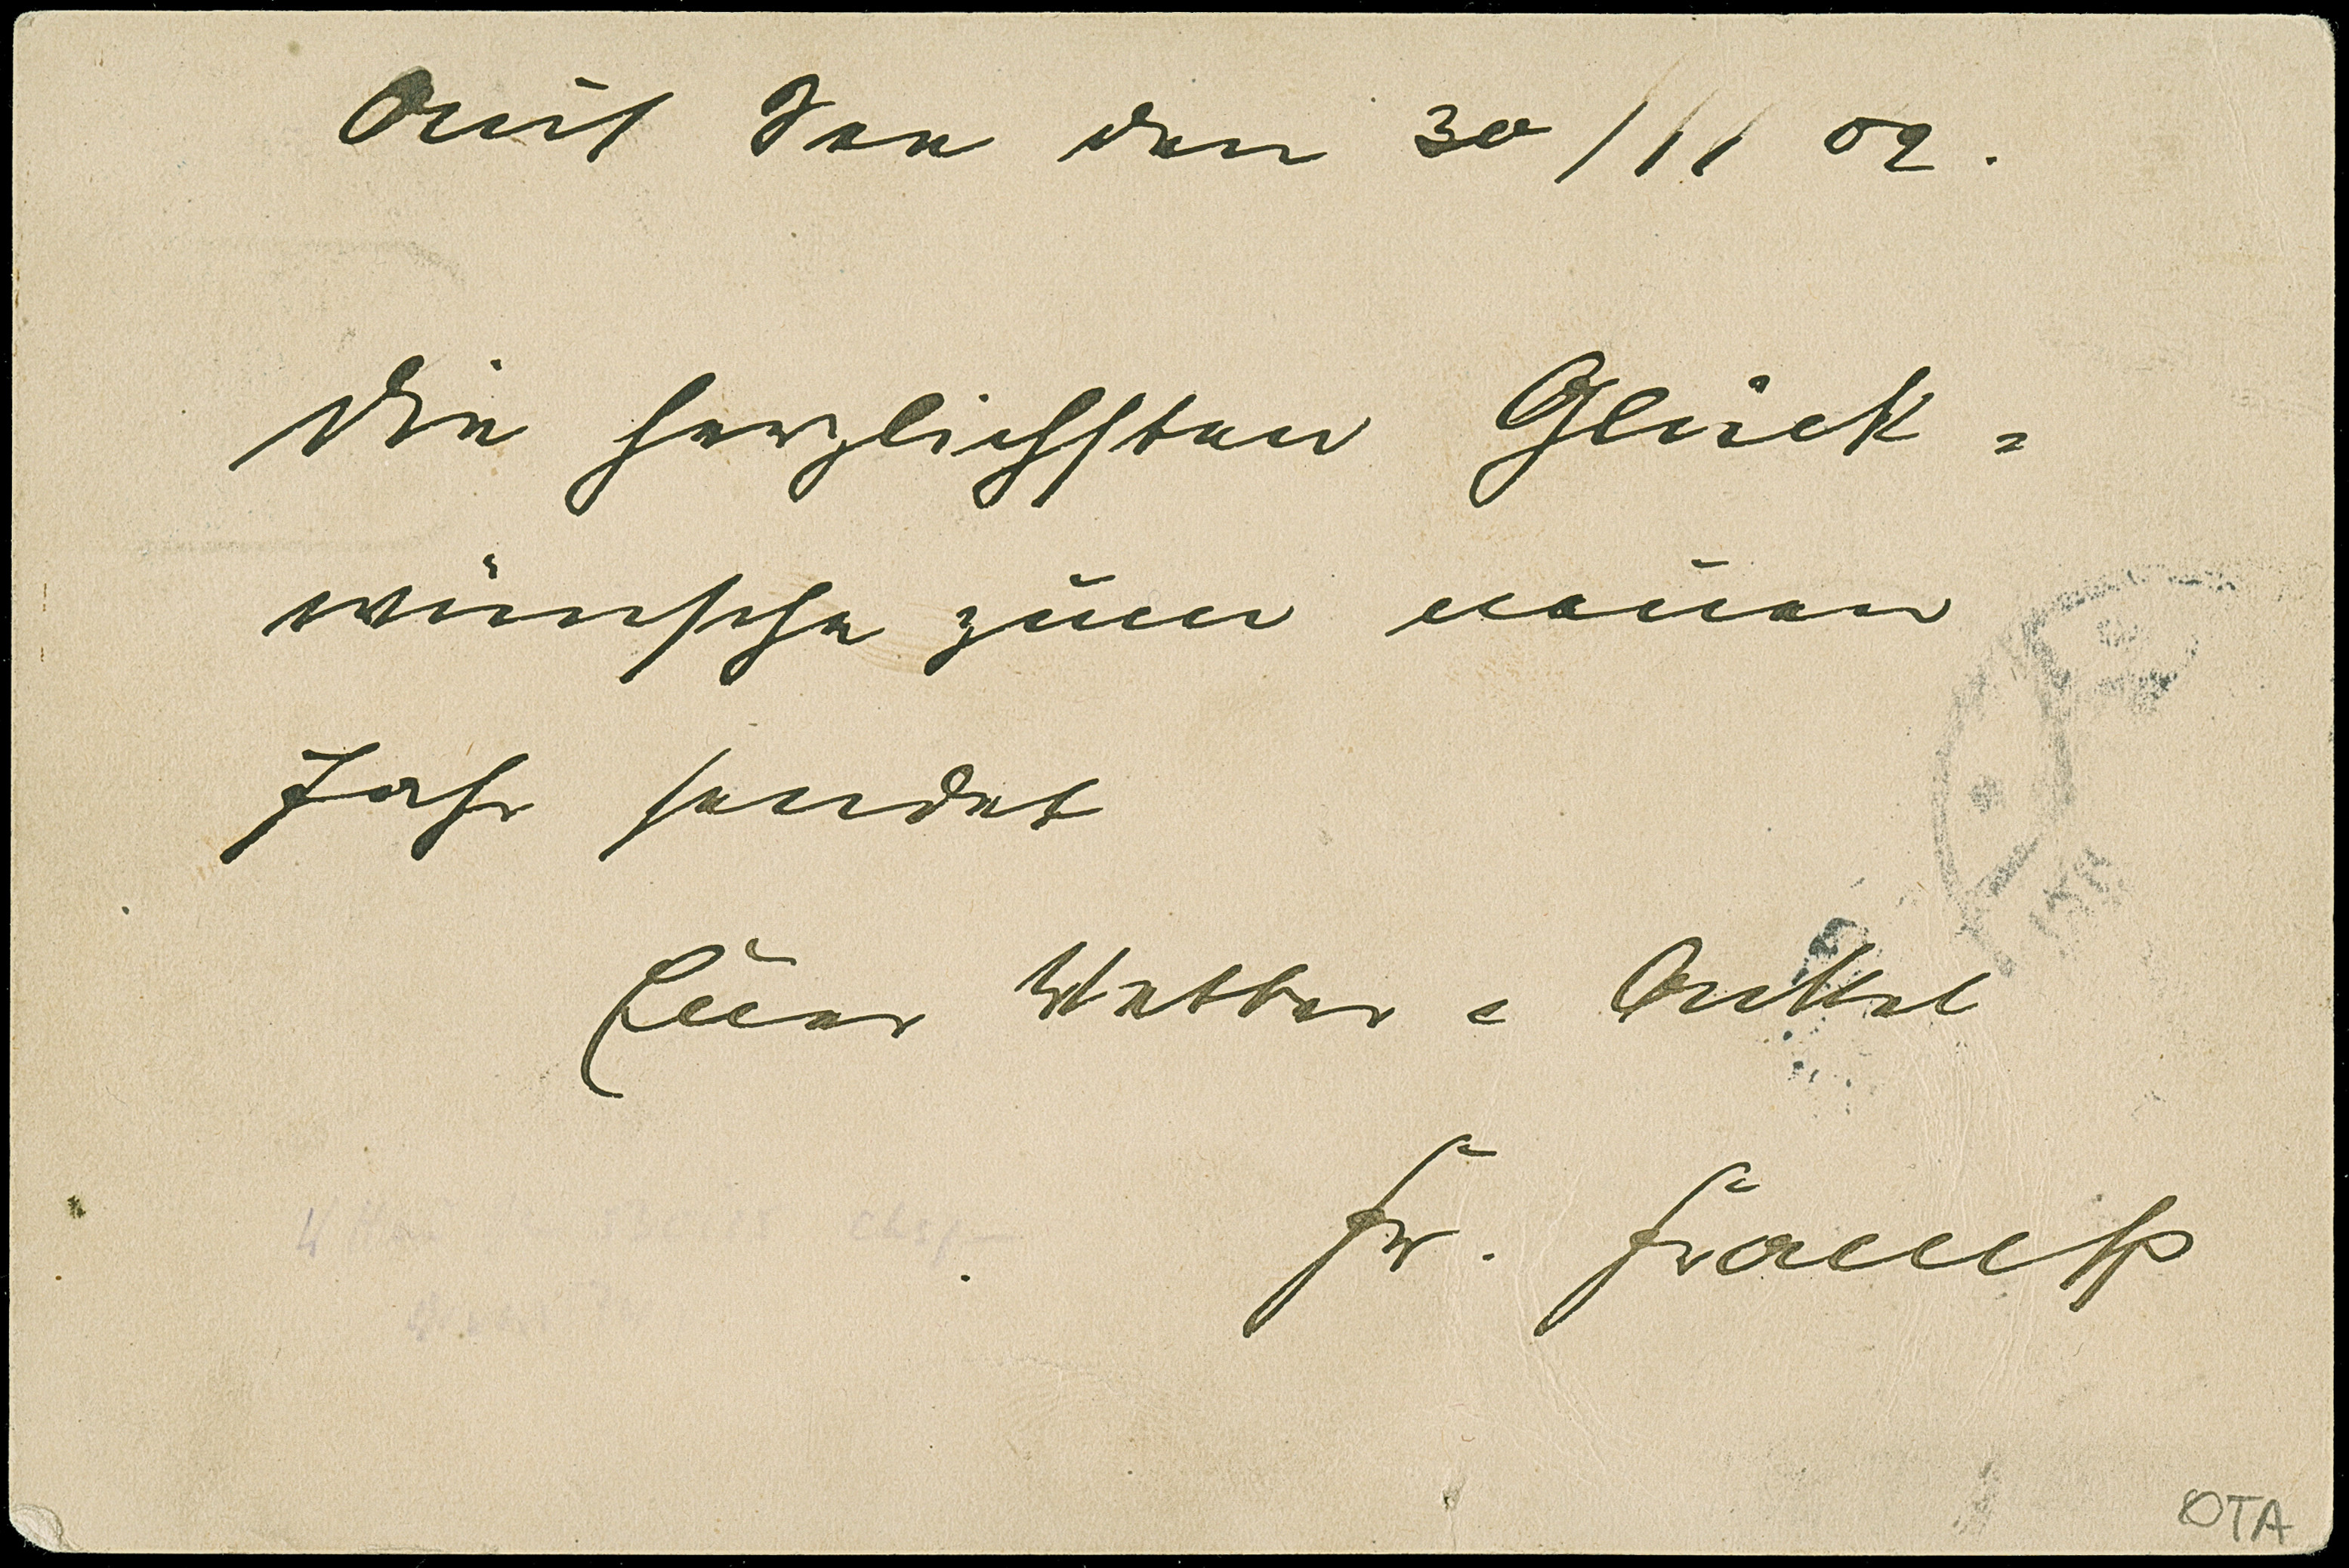 Auf See den 30/11 02.
Die herzlichsten Glück=
wünsche zum neuen
Jahr sendet
Euer Vetter = Onkel
Fr.
OTA